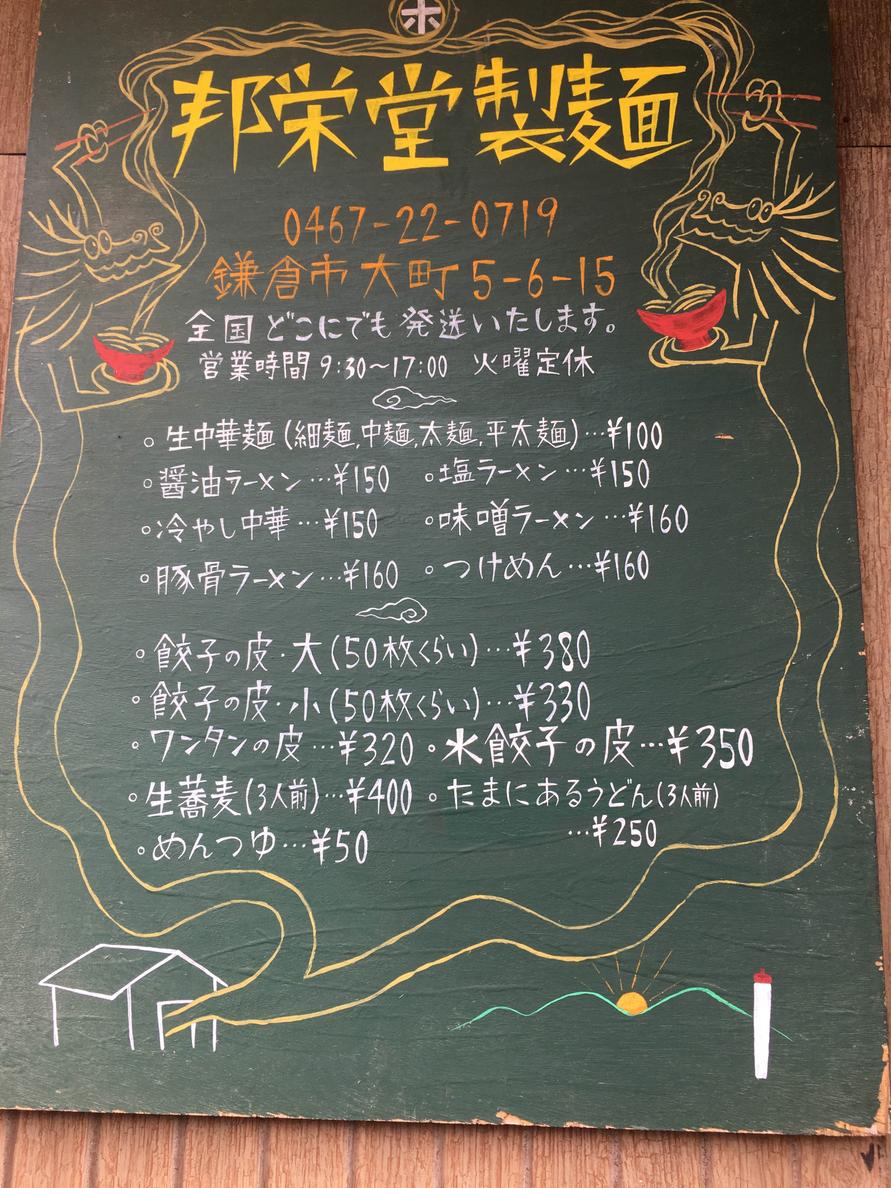 ホ
邦栄堂製麺
0467-22-0719
鎌倉市大町5-6-15
全国どこにでも発送いたします。
営業時間9:30~17:00 火曜定休
。生中華麺(細麺,中麺,太麺,平太麺)…¥100
。醤油ラーメン…¥150 。塩ラーメン…¥150
。冷やし中華…¥150 。味噌ラーメン…¥160
。豚骨ラーメン…¥160 。つけめん…¥160
。餃子の皮・大(50枚くらい)…¥380
。餃子の皮・小(50枚くらい)…¥330
。ワンタンの皮…¥320 。水餃子の皮…¥350
。生蕎麦(3人前)…¥400 。たまにあるうどん(3人前)
…¥250
。めんつゆ…¥50